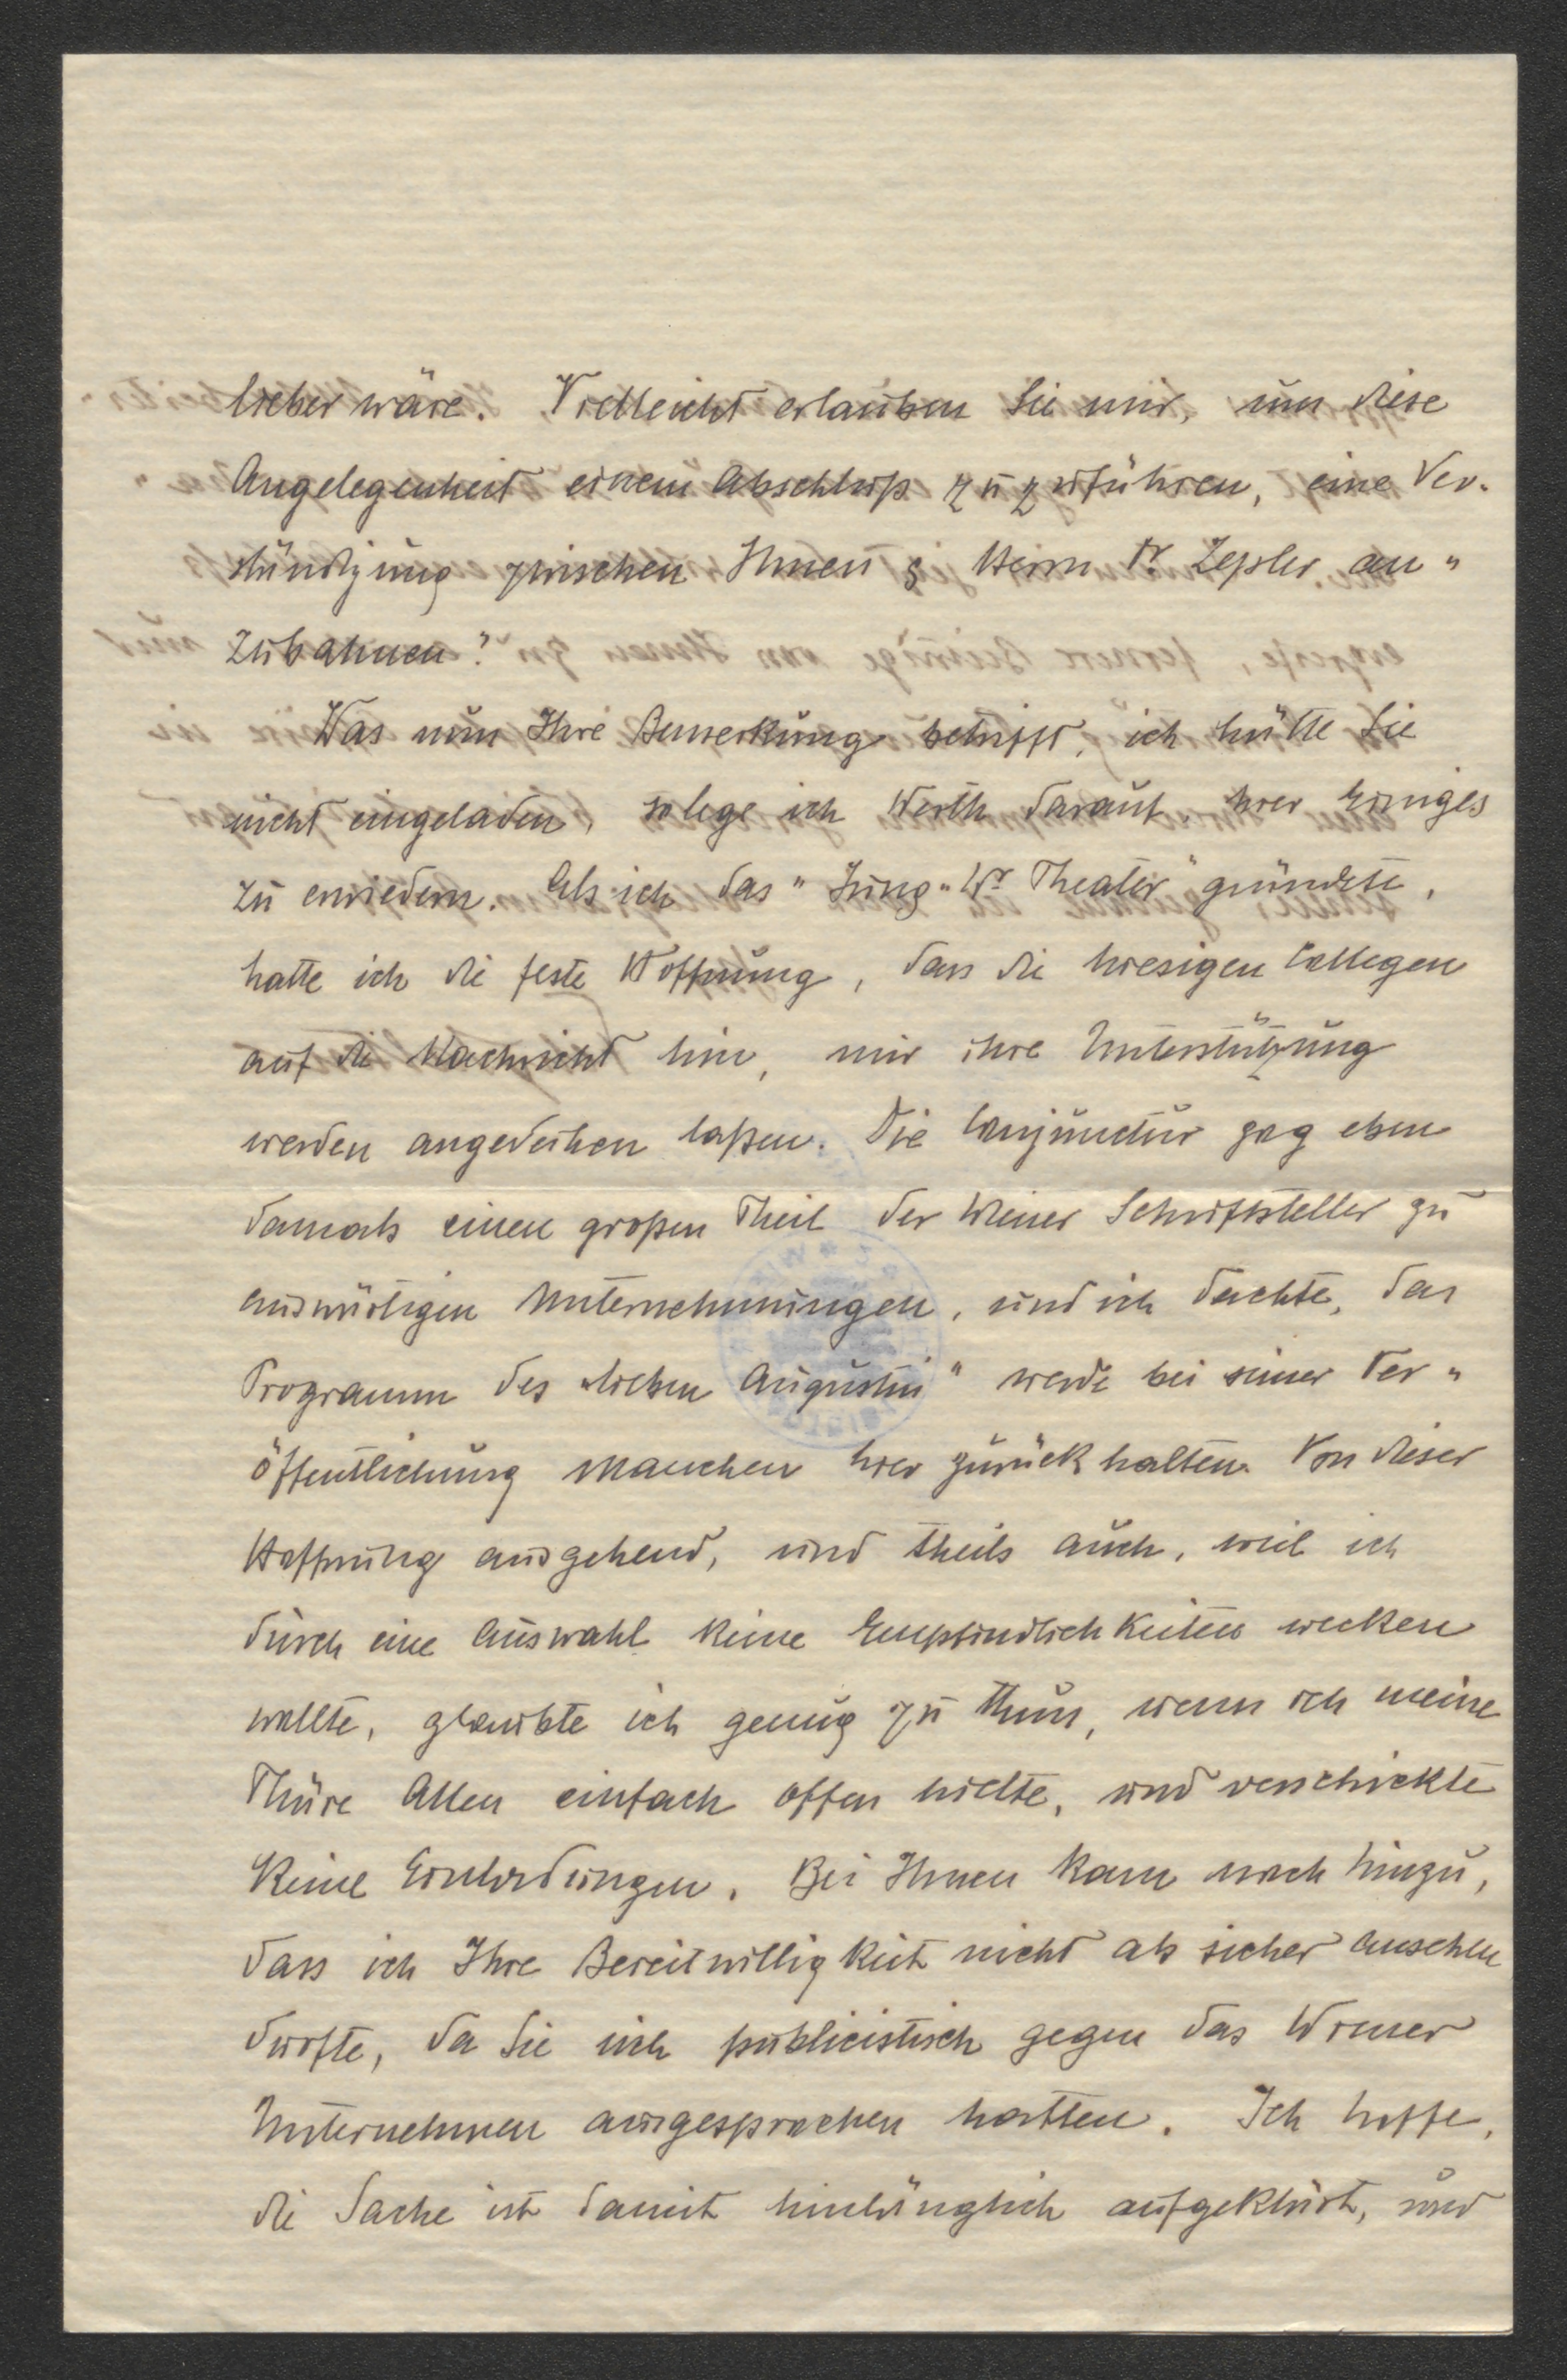 lieber wäre. Vielleicht erlauben Sie mir, um diese
Angelegenheit einem Abschluß zuzuführen, eine Ver-
ständigung zwischen Ihnen & Herrn Dr Zepler an-
zubahnen?
Was nun Ihre Bemerkung betrifft, ich hätte Sie
nicht eingeladen, so lege ich Werth darauf, hier Einiges
zu erwiedern. Als ich das "Jung-Wr Theater" gründete,
hatte ich die feste Hoffnung, dass die hiesigen Collegen
auf die Nachricht hin, mir ihre Unterstützung
werden angedeihen laßen. Die Conjunctur zog eben
damals einen großen Theil der Wiener Schriftsteller zu
auswärtigen Unternehmungen, und ich dachte, das
Programm des "lieben Augustin" werde bei seiner Ver-
öffentlichung Manchen hier zurückhalten. Von dieser
Hoffnung ausgehend, und theils auch, weil ich
durch eine Auswahl keine Empfindlichkeiten wecken
wollte, glaubte ich genug zu thun, wenn ich meine
Thüre Allen einfach offen hielte, und verschickte
keine Einladungen. Bei Ihnen kam noch hinzu,
dass ich Ihre Bereitwilligkeit nicht als sicher ansehen
durfte, da Sie sich publicistisch gegen das Wiener
Unternehmen ausgesprochen hatten. Ich hoffe,
die Sache ist damit hinlänglich aufgeklärt, und